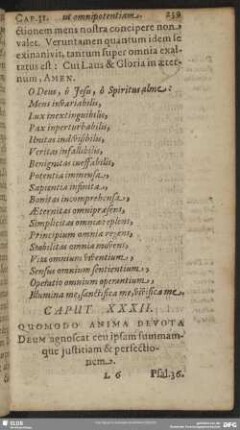 CAP. 31. ut omnipotentiam. 239
ctionem mens nostra concipere non
valet. Veruntamen quantum idem se
exinanivit, tantum super omnia exal-
tatus est: Cui Laus & Gloria in æter-
num, AMEN.
O Deus, ô Jesu, ô Spiritus alme:
Mens invariabilis,
Lux inextinguibilis,
Pax inperturbabilis,
Unitas indivisibilis,
Veritas infallibilis,
Benignitas ineffabilis,
Potentia immensa,
Sapientia infinita,
Bonitas incomprehensa,
Æternitas omnipræsens,
Simplicitas omnia replens,
Principium omnia regens,
Stabilitas omnia movens,
Vita omnium viventium,
Sensus omnium sentientium,
Operatio omnium operantium,
Illumina me, sanctifica me, vivifica me.
CAPUT XXXII.
QUOMODO ANIMA DEVOTA
DEUM agnoscat ceu ipsam summam-
que justitiam & perfectio-
nem.
L 6 Psal. 36.
SLUB